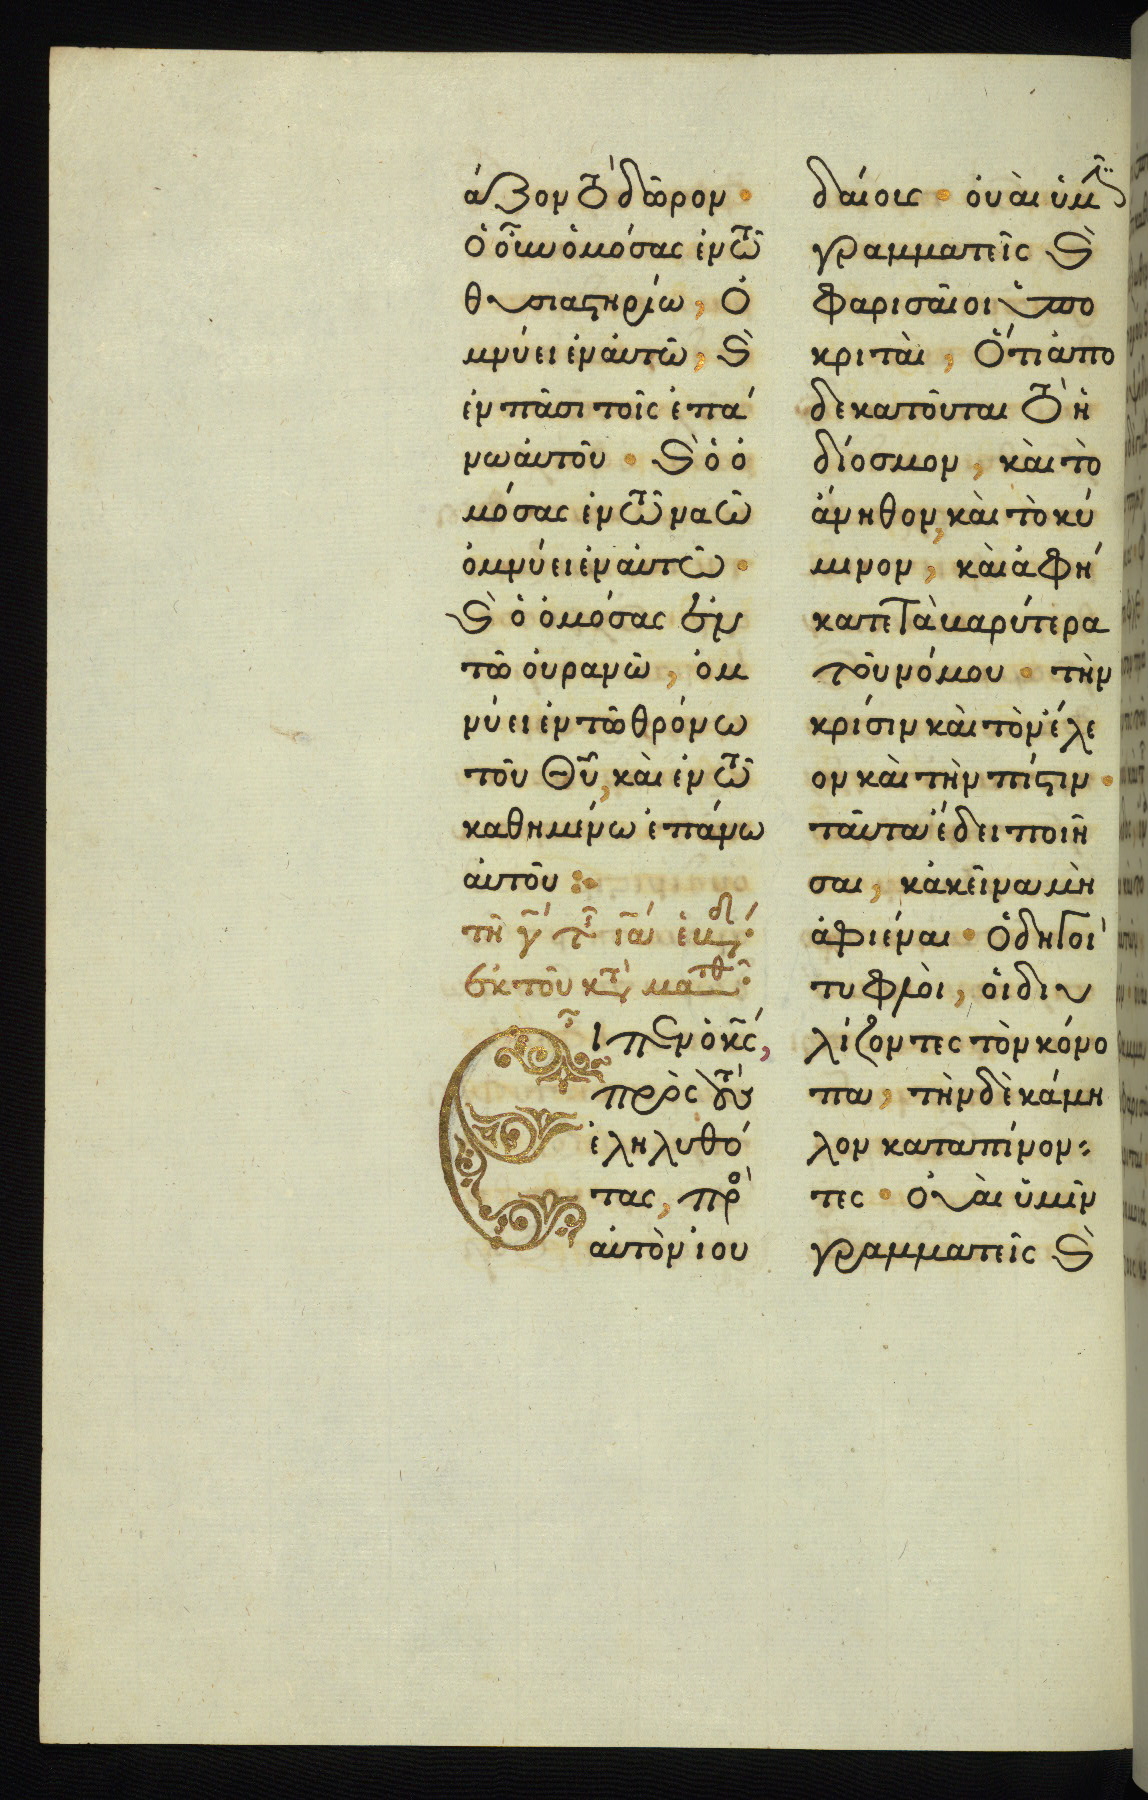 άζον τὸ δῶρον·
ὁ οὖν ὀμόσας ἐν τῶ
θυσιαστηρίω, ὀ
μνύει ἐν αὐτῶ, καὶ
ἐν πᾶσι τοῖς ἐπά
νω αὐτοῦ· καὶ ὁ ὀ
μόσας ἐν τῶ ναῶ
ὀμνύει ἐν αὐτῶ·
καὶ ὁ ὀμόσας ἐν
τῶ οὐρανῶ, ὀμ
νύει ἐν τῶ θρόνω
τοῦ Θῦ, καὶ ἐν τῶ
καθημένω ἐπάνω
αὐτοῦ :·
τῆ γ´ τῆς ια´ ἑβδ·
ἐκ τοῦ κατὰ ματθ·
Εἶπεν ὁ κς̄,
πρὸς τοὺς
ἐληλυθό
τας, πρὸ
αὐτὸν ἰου
δαίους· οὐαὶ ὑμῖν
γραμματεῖς καὶ
φαρισαῖοι ὑπο
κριταὶ, ὅτι ἀπο
δεκατοῦται τὸ ἡ
δίοσμον, καὶ τὸ
ἄνηθον, καὶ τὸ κύ
μινον, καὶ ἀφή
κατε τὰ βαρύτερα
τοῦ νόμου· τὴν
κρίσιν καὶ τὸν ἔλε
ον καὶ τὴν πίστιν·
ταῦτα ἔδει ποιῆ
σαι, κἀκεῖνα μὴ
ἀφιέναι· ὁδηγοὶ
τυφλοὶ, οἱ διυ
λίζοντες τὸν κόνο
πα, τὴν δὲ κάμη
λον καταπίνον:
τες· οὐαὶ ὑμῖν
γραμματεῖς καὶ